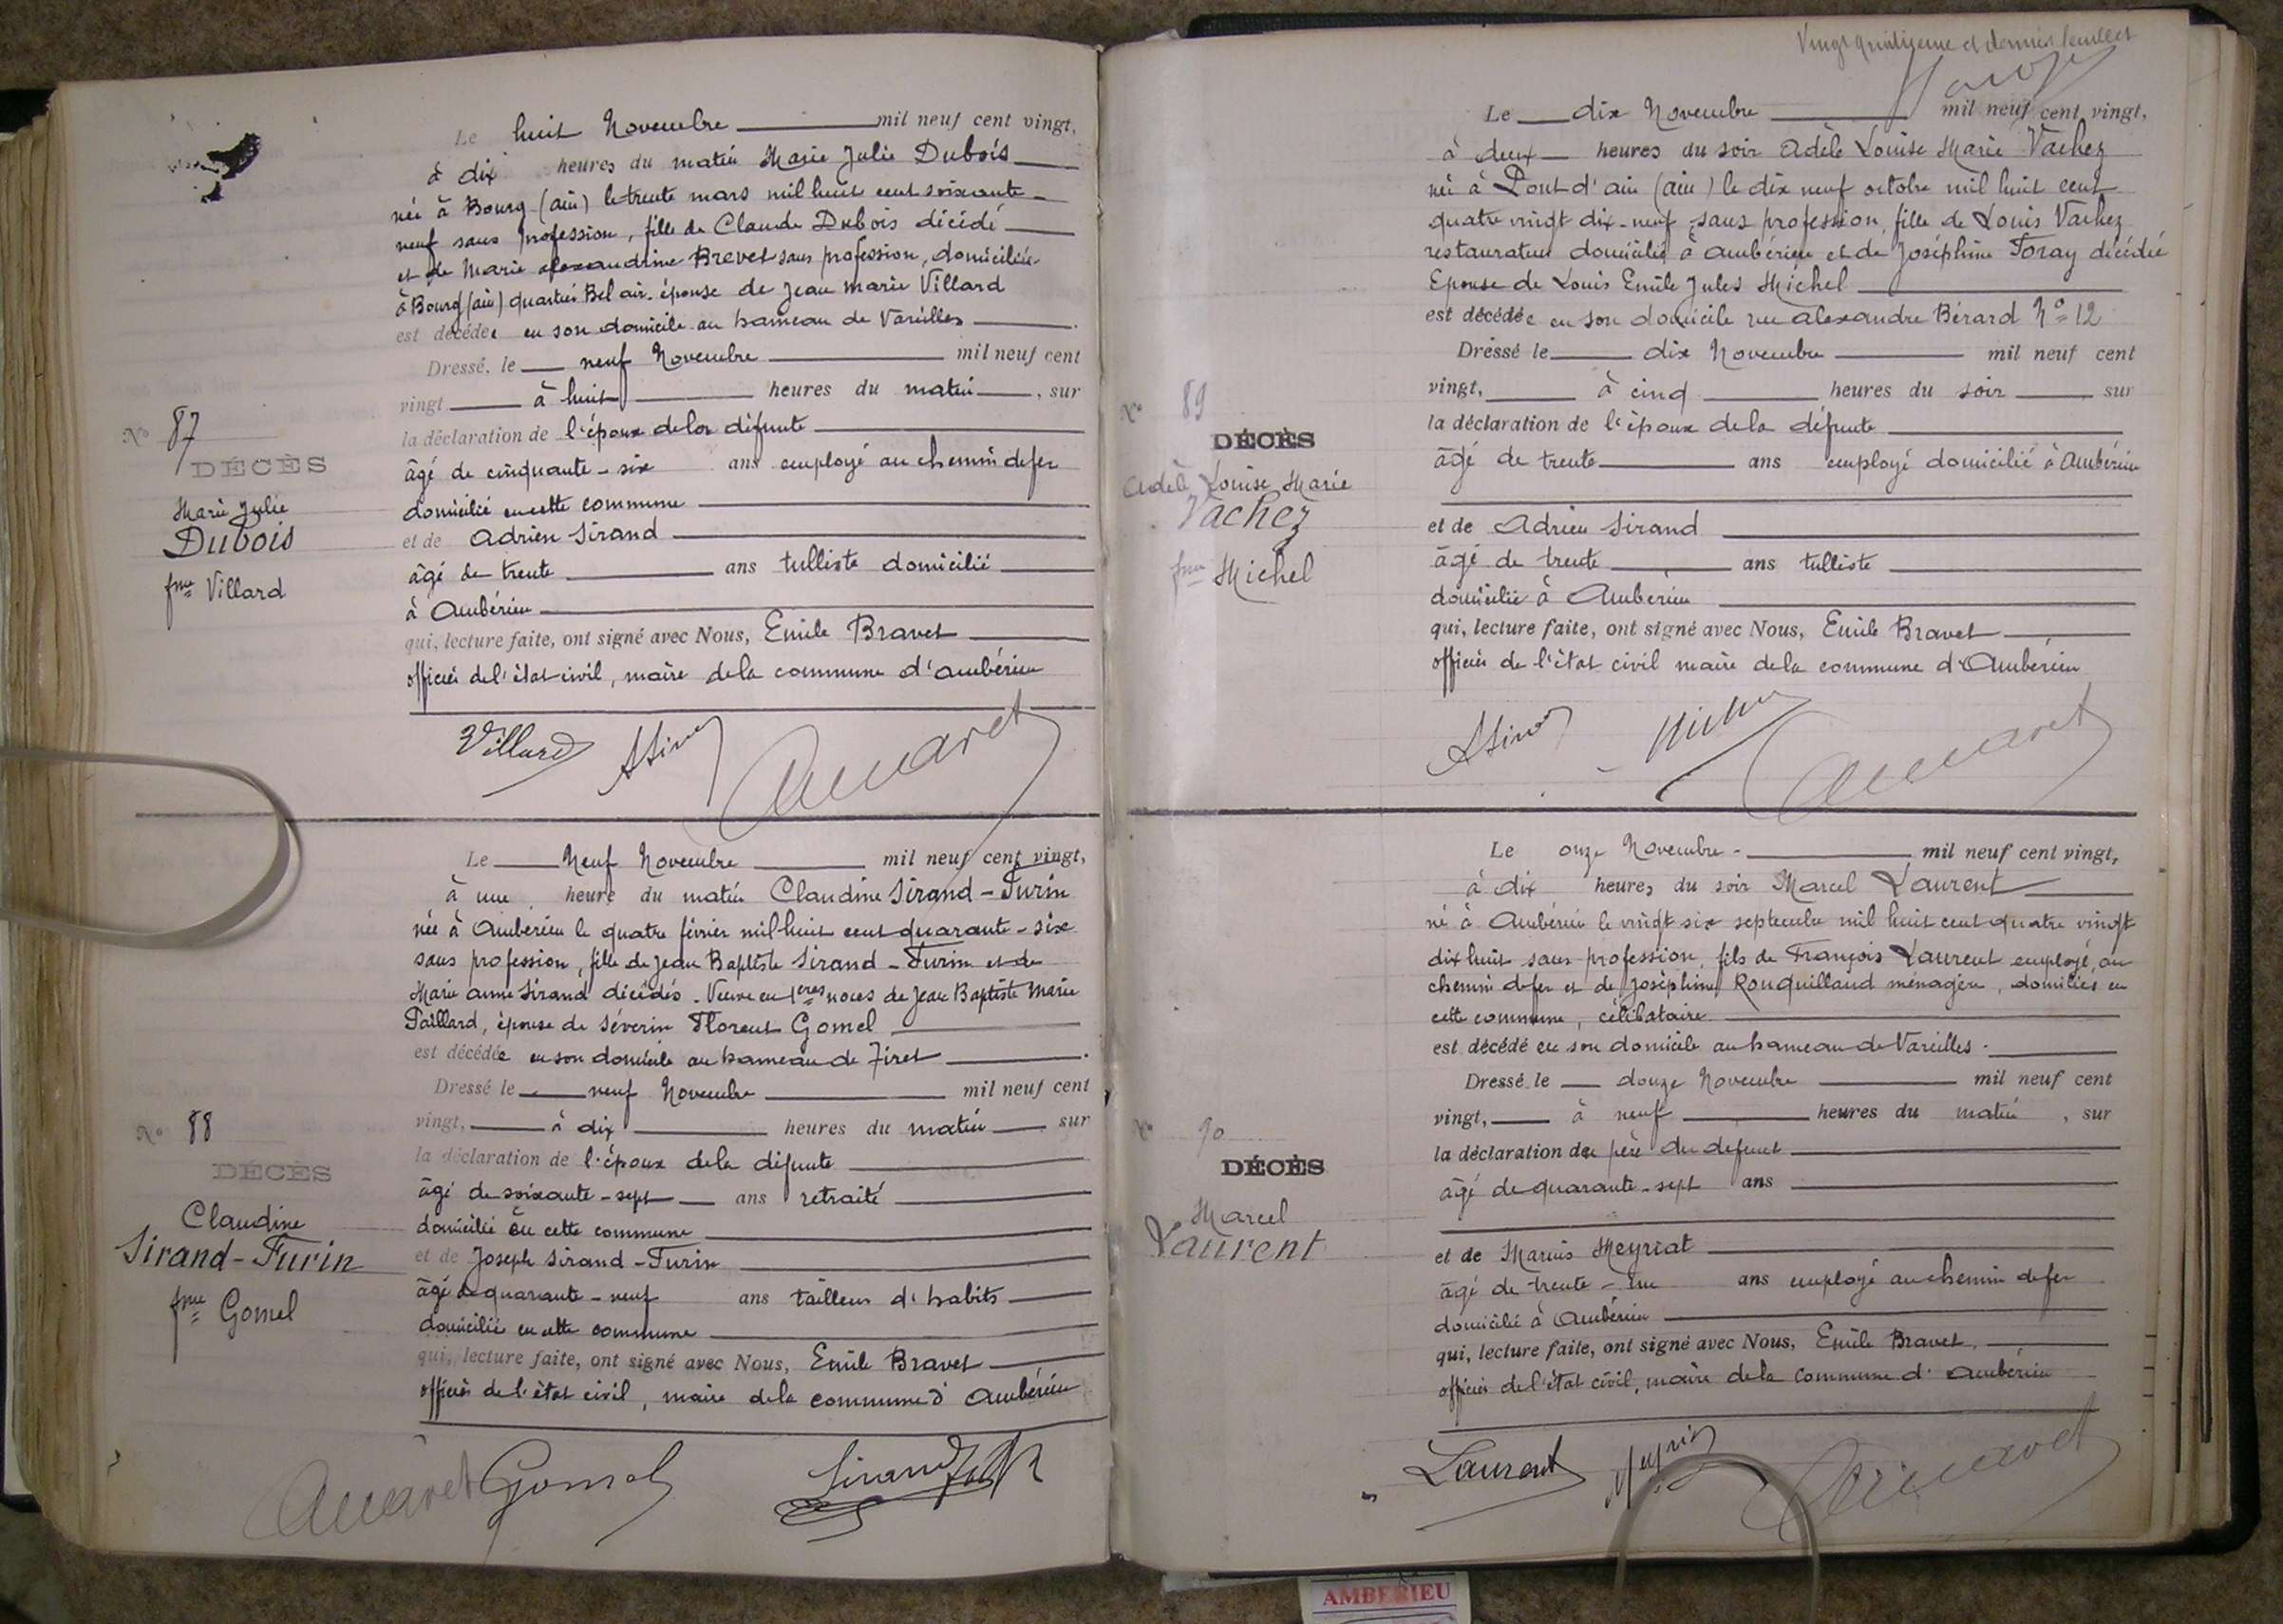 Le huit Novembre mil neuf cent vingt,
à dix heures du matin Marie Julie Dubois
née à Bourg (ain) le trente mars mil huit cent soixante-
neuf sans profession, fille de Claude Dubois décédé
et de Marie alexandrine Brevet sans profession, domiciliée
à Bourg (ain) quartier Bel air. épouse de Jean marie Villard
est décédée en son domicile au hameau de Vareilles
Dressé, le neuf Novembre mil neuf cent
vingt à huit heures du matin, sur
la déclaration de l'époux de la défunte
âgé de cinquante-six ans employé au chemin de fer
domicilié en cette commune
et de Adrien Sirand
âgé de trente ans tulliste domicilié
à Ambérieu
qui, lecture faite, ont signé avec Nous, Emile Bravet
officier de l'état civil, maire de la commune d'ambérieu
Villard
N° 87
DÉCÈS
Marie Julie
Dubois
fme Villard
Le Neuf Novembre mil neuf cent vingt,
à une heure du matin Claudine Sirand-Furin
née à Ambérieu le quatre février mil huit cent quarante-six
sans profession, fille de Jean Baptiste Sirand-Furin et de
Marie anne Sirand décédés. Veuve en 1eres noces de Jean Baptiste Marie
Paillard, épouse de Séverin Florent Gomel
est décédée en son domicile au hameau de Tiret
Dressé le neuf Novembre mil neuf cent
vingt, à dix heures du matin sur
la déclaration de l'époux de la défunte
âgé de soixante-sept ans retraité
domicilié en cette commune
et de Joseph Sirand-Furin
âgé de quarante-neuf ans tailleur d'habits
domicilié en cette commune
qui, lecture faite, ont signé avec Nous, Emile Bravet
officier de l'état civil, maire de la commune d'Ambérieu
Gomel
N° 88
DÉCÈS
Claudine
Sirand-Furin
fme Gomel
Le dix Novembre mil neuf cent vingt,
à deux heures du soir Adèle Louise Marie Vachez
née à Pont d'ain (ain) le dix neuf octobre mil huit cent
quatre vingt dix-neuf, sans profession, fille de Louis Vachez
restaurateur domicilié à ambérieu et de Joséphine Foray décédée
Epouse de Louis Emile Jules Michel
est décédée en son domicile rue alexandre Bérard N° 12
Dressé le dix Novembre mil neuf cent
vingt, à cinq heures du soir sur
la déclaration de l'époux de la défunte
âgé de trente ans employé domicilié à Ambérieu
et de Adrien Sirand
âgé de trente ans tulliste
domicilié à Ambérieu
qui, lecture faite, ont signé avec Nous, Emile Bravet
officier de l'état civil maire de la commune d'Ambérieu
N° 89
DÉCÈS
Adèle Louise Marie
Vachez
fme Michel
Le onze Novembre mil neuf cent vingt,
à dix heures du soir Marcel Laurent
né à Ambérieu le vingt six septembre mil huit cent quatre vingt
dix huit sans profession, fils de François Laurent employé au
chemin de fer et de Joséphine Ronquillaud ménagère, domiciliés en
cette commune, célibataire
est décédé en son domicile au hameau de Vareilles.
Dressé le douze Novembre mil neuf cent
vingt, à neuf heures du matin, sur
la déclaration du père du defunt
âgé de quarante-sept ans
et de Marius Meyriat
âgé de trente-un ans employé au chemin de fer
domicilié à Ambérieu
qui, lecture faite, ont signé avec Nous, Emile Bravet,
officier de l'état civil, maire de la commune d'ambérieu
Laurent
N° 90
DÉCÈS
Marcel
Laurent
AMBERIEU